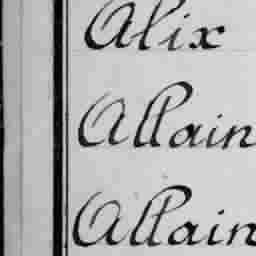 Alix
Allain
Allain